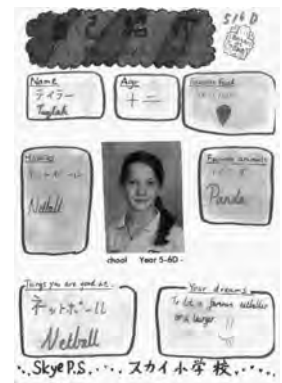 自己紹介
5/6 D
Name
テイラー
Taylah
Age
十二
Favourite Food
Hobbies
ネットボール
Netball
Favourite animals
パンダ
Panda
chool Year 5-6D -
Things you are good at...
ネットボール
Netball
Your dreams...
To be a famous netballer
or a lawyer.
Skye P.S. スカイ小学校